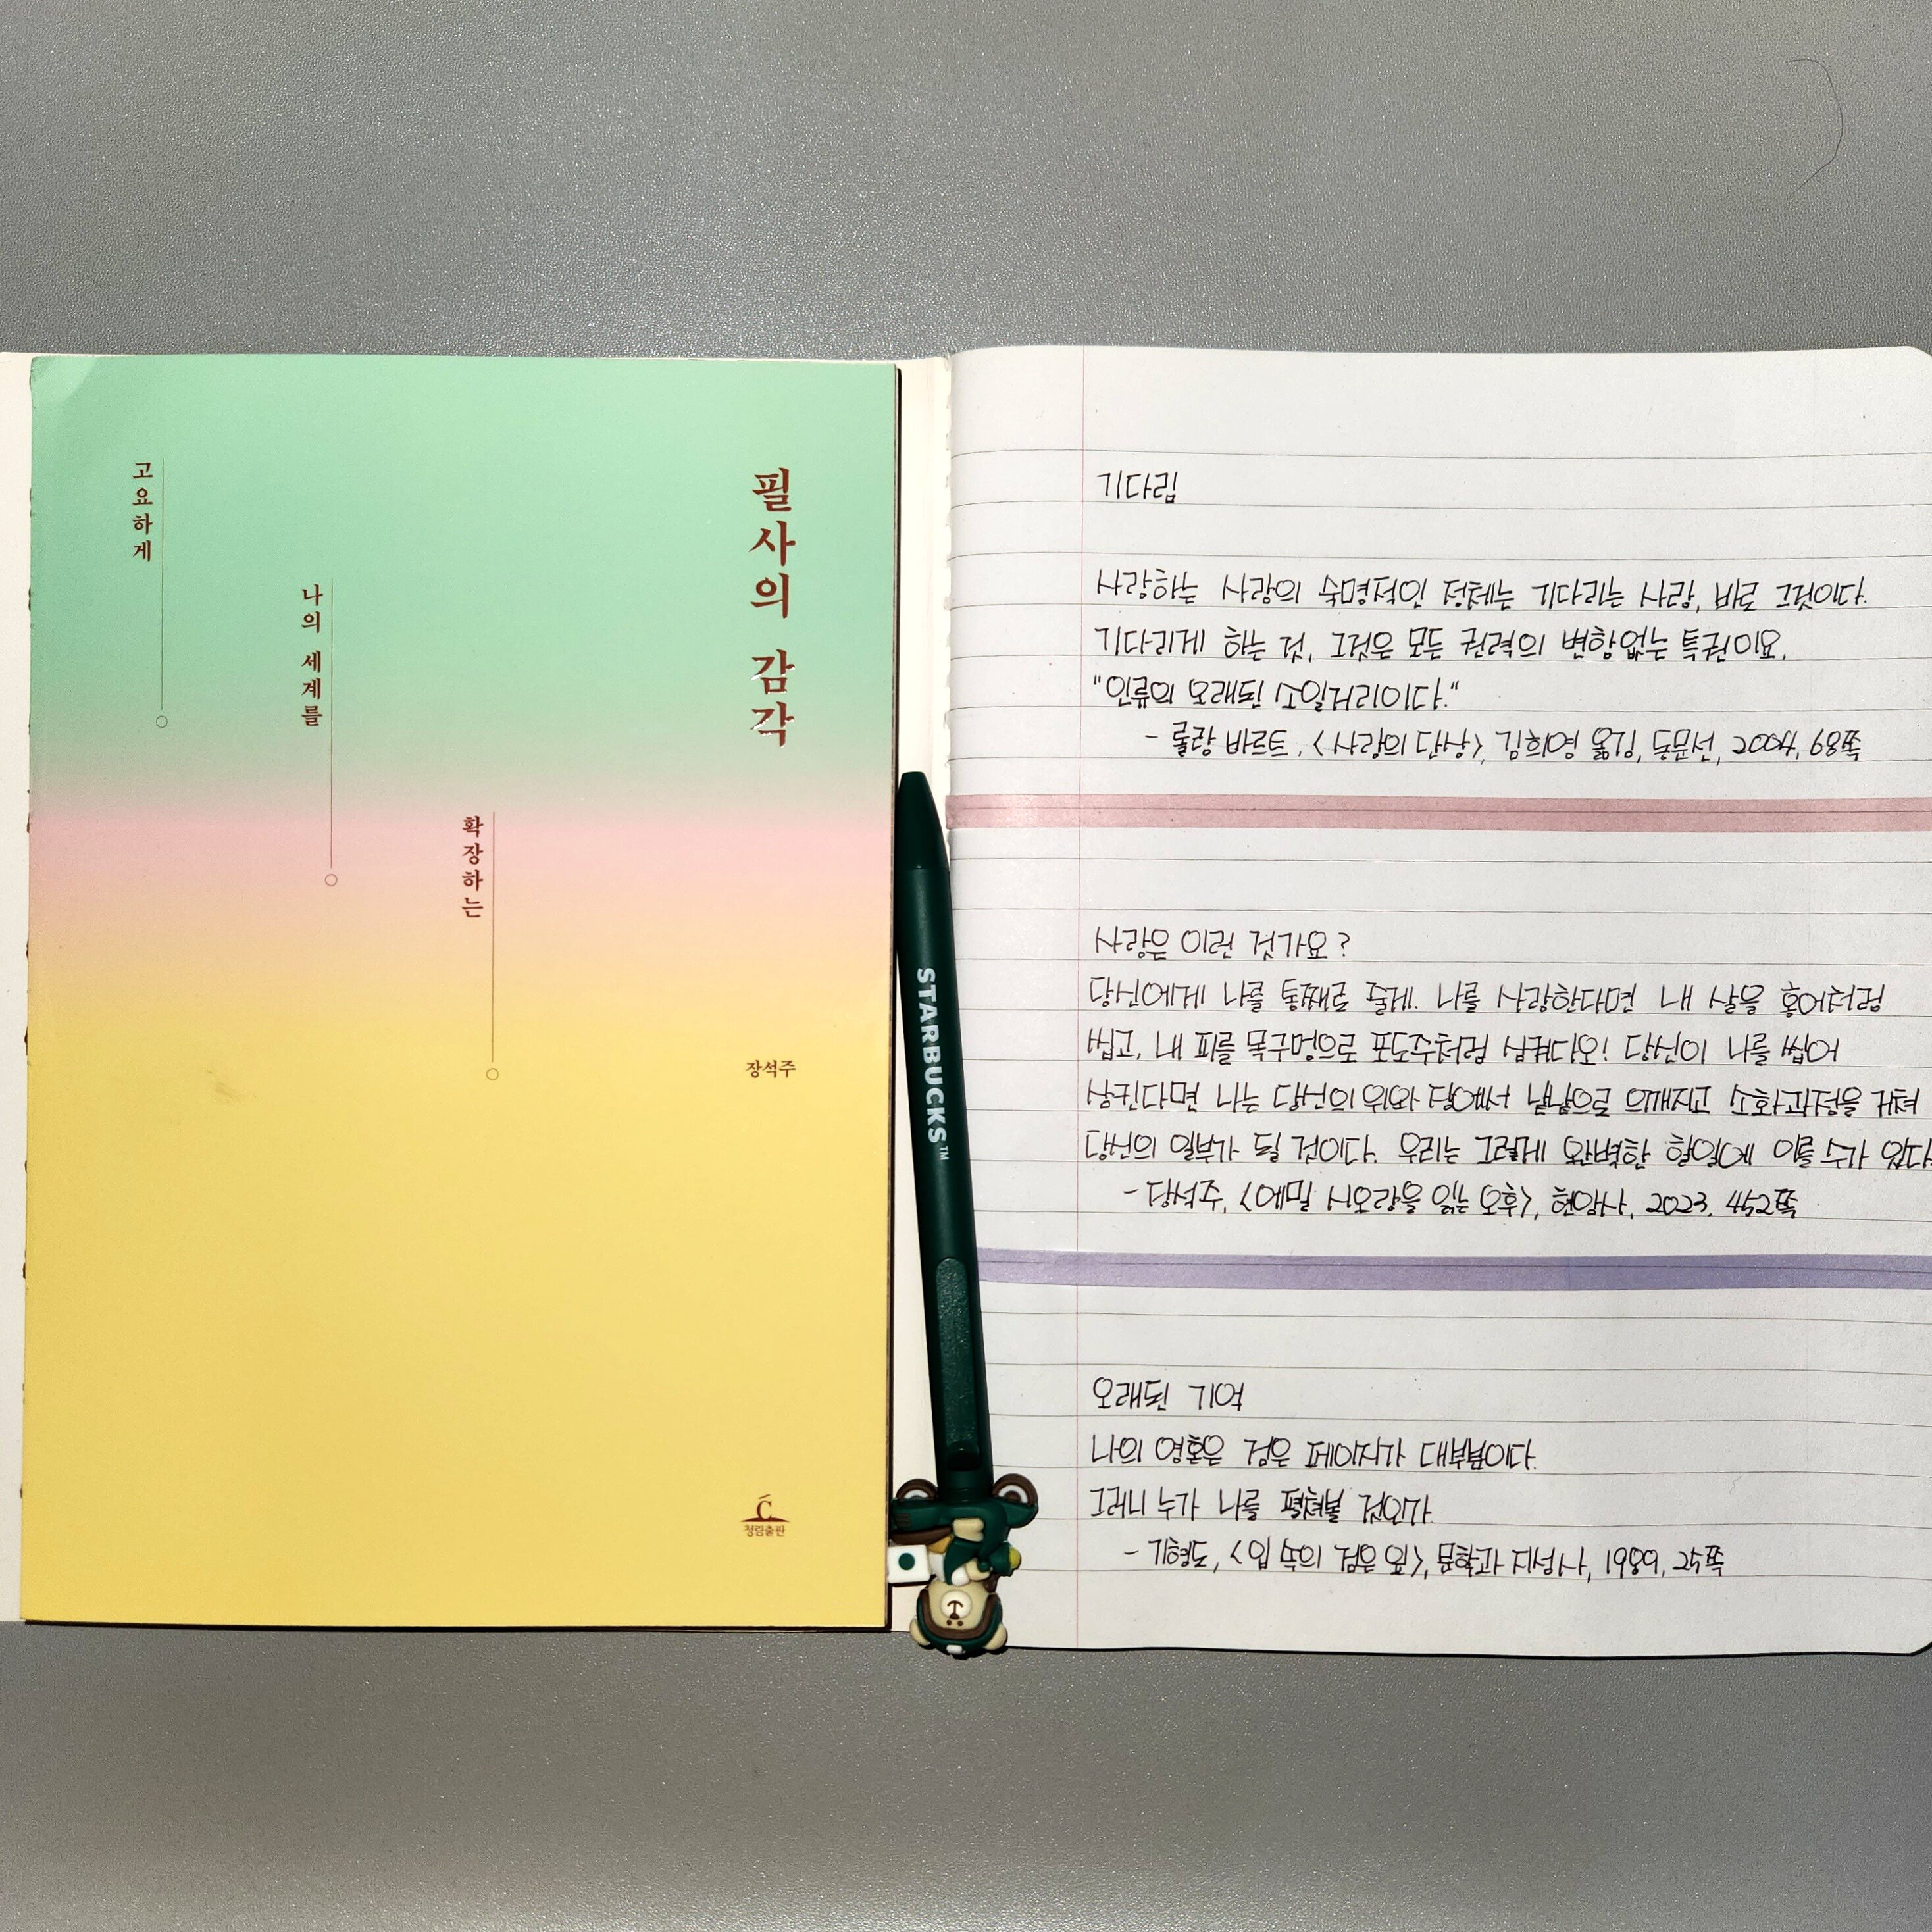 고요하게
나의 세계를
확장하는
필사의 감각
장석주
청림출판
STARBUCKS™
기다림
사랑하는 사람의 숙명적인 정체는 기다리는 사람, 바로 그것이다.
기다리게 하는 것, 그것은 모든 권력의 변함없는 특권이요,
"인류의 오래된 소일거리이다."
- 롤랑 바르트, <사랑의 단상>, 김희영 옮김, 동문선, 2004, 68쪽
사랑은 이런 건가요?
당신에게 나를 통째로 줄게. 나를 사랑한다면 내 살을 홍어처럼
씹고, 내 피를 목구멍으로 포도주처럼 삼켜다오! 당신이 나를 씹어
삼킨다면 나는 당신의 위와 장에서 낱낱으로 으깨지고 소화과정을 거쳐
당신의 일부가 될 것이다. 우리는 그렇게 완벽한 합일에 이를 수가 있다
- 장석주, <에밀 시오랑을 읽는 오후>, 현암사, 2023. 452쪽
오래된 기억
나의 영혼은 검은 페이지가 대부분이다.
그러니 누가 나를 펼쳐볼 것인가
- 기형도, <입 속의 검은 잎>, 문학과 지성사, 1989, 25쪽